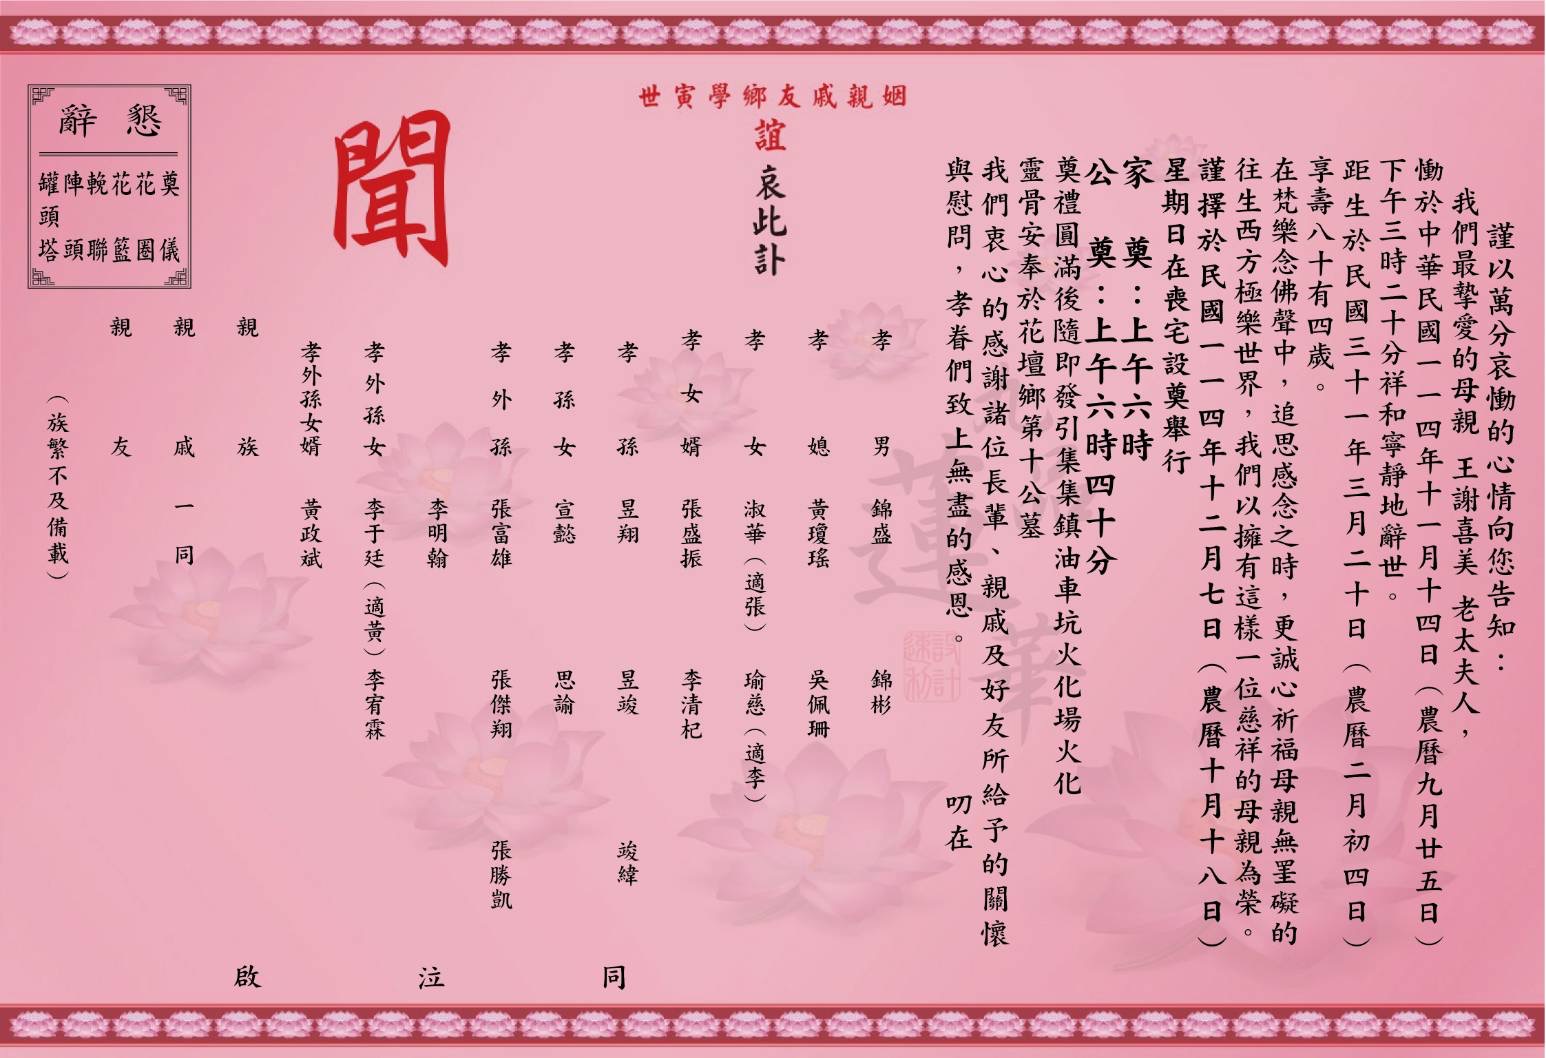 謹以萬分哀慟的心情向您告知：
我們最摯愛的母親 王謝喜美 老太夫人，
慟於中華民國一一四年十一月十四日（農曆九月廿五日）
下午三時二十分祥和寧靜地辭世。
距生於民國三十一年三月二十日（農曆二月初四日）
享壽八十有四歲。
在梵樂念佛聲中，追思感念之時，更誠心祈福母親無罣礙的
往生西方極樂世界，我們以擁有這樣一位慈祥的母親為榮。
謹擇於民國一一四年十二月七日（農曆十月十八日）
星期日在喪宅設奠舉行
家 奠：上午六時
公 奠：上午六時四十分
奠禮圓滿後隨即發引集集鎮油車坑火化場火化
靈骨安奉於花壇鄉第十公墓
我們衷心的感謝諸位長輩、親戚及好友所給予的關懷
與慰問，孝眷們致上無盡的感恩。 叨在
姻親戚友鄉學寅世
誼
哀此訃
聞
孝男 錦盛 錦彬
孝媳 黃瓊瑤 吳佩珊
孝女 淑華（適張） 瑜慈（適李）
孝女婿 張盛振 李清杞
孝孫 昱翔 昱竣 竣緯
孝孫女 宣懿 思諭
孝外孫 張富雄 張傑翔 張勝凱
李明翰
孝外孫女 李于廷（適黃） 李宥霖
孝外孫女婿 黃政斌
親族
親戚一同
親友
（族繁不及備載）
同泣啟
懇辭
奠儀
花圈
花籃
輓聯
陣頭
罐頭塔
蓮華
設計